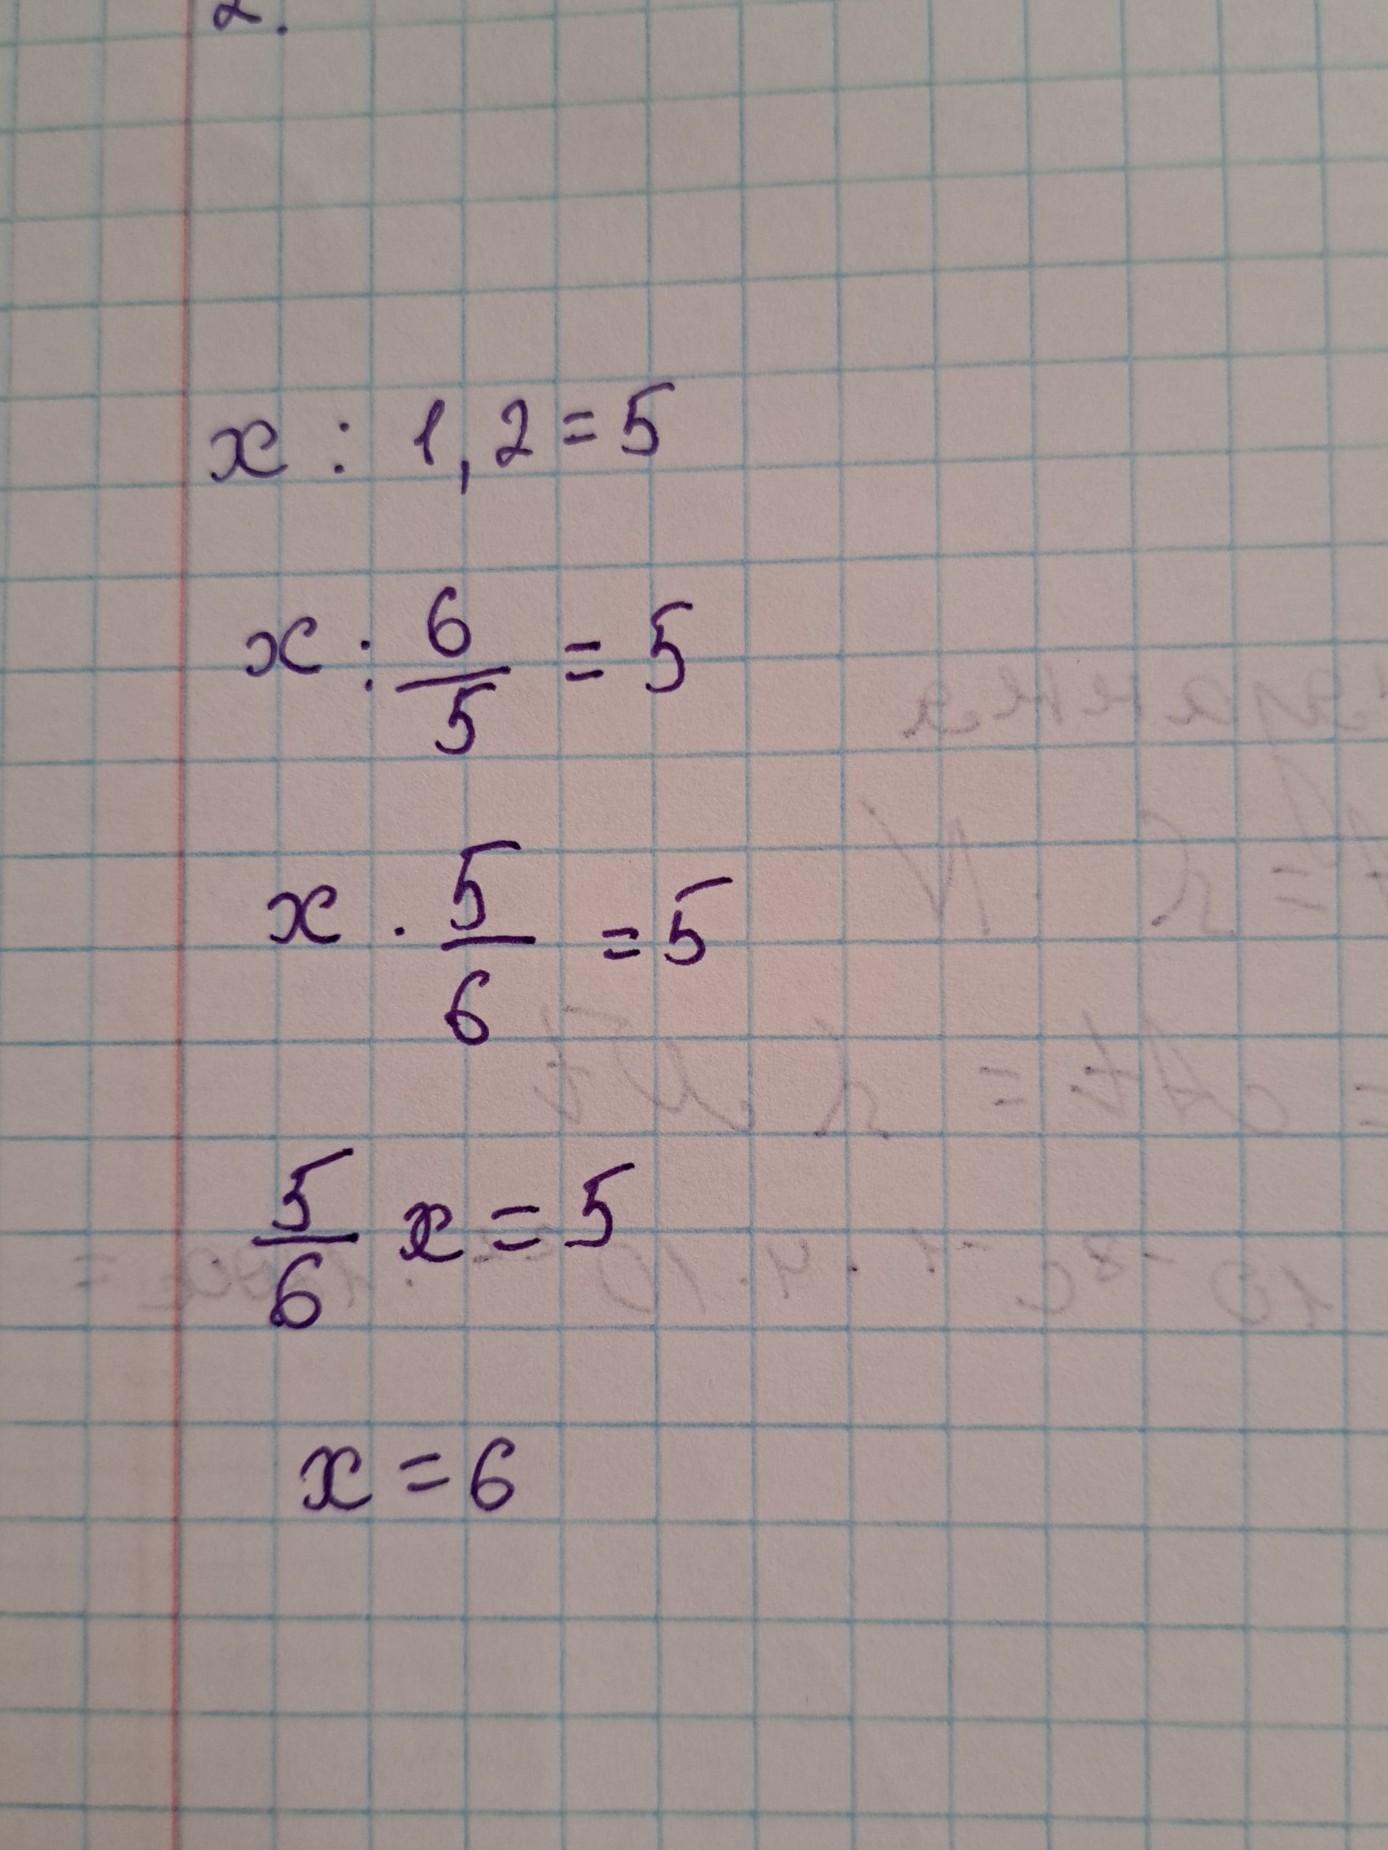 2.
x : 1,2 = 5
x : 6/5 = 5
x · 5/6 = 5
5/6 x = 5
x = 6